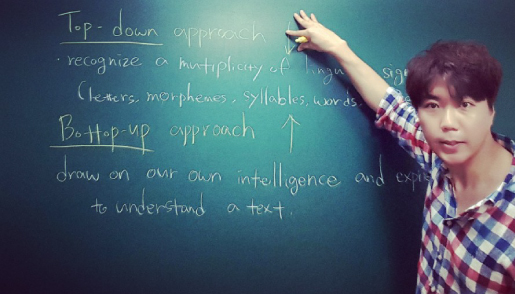 Top-down approach
· recognize a mutiplicity of
(letters, morphemes, syllables, words
Bottop-up approach
draw on our own intelligence and
to understand a text.